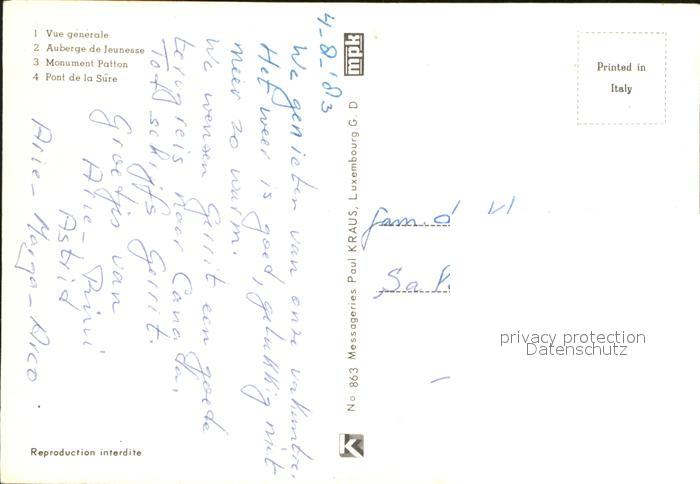 1 Vue generale
2 Auberge de Jeunesse
3 Monument Patton
4 Pont de la Sûre
4-8-'83
We genieten van onze vakantie.
Het weer is goed, gelukkig niet
meer zo warm.
We wensen Gerrit een goede
terugreis naar Canada.
Tot schijfs Gerrit.
Groetjes van
Arie - Rini
Astrid
Arie - Marga - Arco.
Reproduction interdite
mpk
No. 863 Messageries Paul KRAUS, Luxembourg G. D
K
Printed in
Italy
fam. d
Sa
privacy protection
Datenschutz